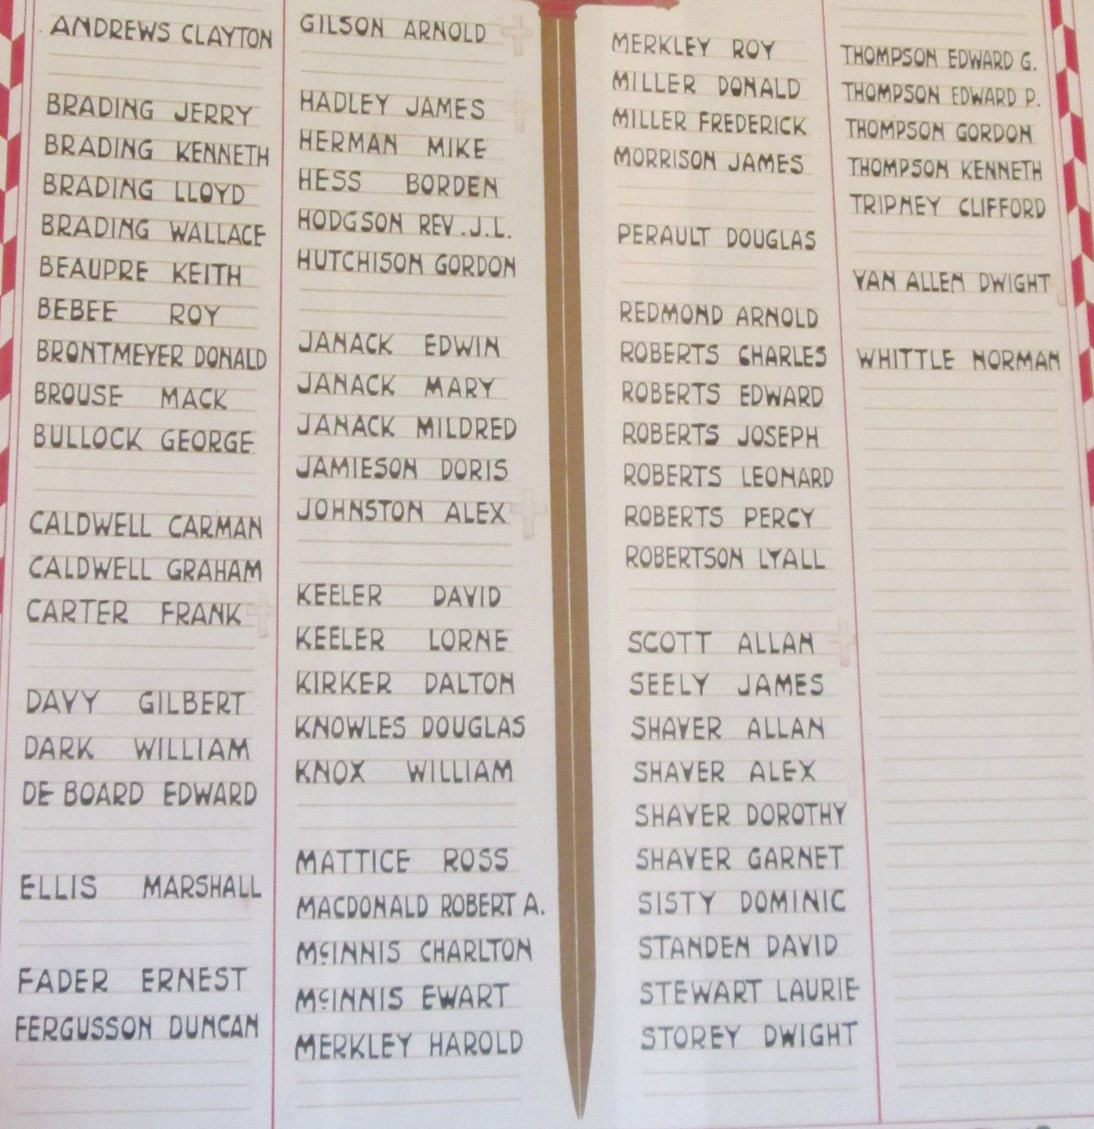 ANDREWS CLAYTON
BRADING JERRY
BRADING KENNETH
BRADING LLOYD
BRADING WALLACE
BEAUPRE KEITH
BEBEE ROY
BRONTMEYER DONALD
BROUSE MACK
BULLOCK GEORGE
CALDWELL CARMAN
CALDWELL GRAHAM
CARTER FRANK
DAVY GILBERT
DARK WILLIAM
DE BOARD EDWARD
ELLIS MARSHALL
FADER ERNEST
FERGUSSON DUNCAN
GILSON ARNOLD
HADLEY JAMES
HERMAN MIKE
HESS BORDEN
HODGSON REV. J.L.
HUTCHISON GORDON
JANACK EDWIN
JANACK MARY
JANACK MILDRED
JAMIESON DORIS
JOHNSTON ALEX
KEELER DAVID
KEELER LORNE
KIRKER DALTON
KNOWLES DOUGLAS
KNOX WILLIAM
MATTICE ROSS
MACDONALD ROBERT A.
McINNIS CHARLTON
McINNIS EWART
MERKLEY HAROLD
MERKLEY ROY
MILLER DONALD
MILLER FREDERICK
MORRISON JAMES
PERAULT DOUGLAS
REDMOND ARNOLD
ROBERTS CHARLES
ROBERTS EDWARD
ROBERTS JOSEPH
ROBERTS LEONARD
ROBERTS PERCY
ROBERTSON LYALL
SCOTT ALLAN
SEELY JAMES
SHAVER ALLAN
SHAVER ALEX
SHAVER DOROTHY
SHAVER GARNET
SISTY DOMINIC
STANDEN DAVID
STEWART LAURIE
STOREY DWIGHT
THOMPSON EDWARD G.
THOMPSON EDWARD P.
THOMPSON GORDON
THOMPSON KENNETH
TRIPNEY CLIFFORD
VAN ALLEN DWIGHT
WHITTLE NORMAN